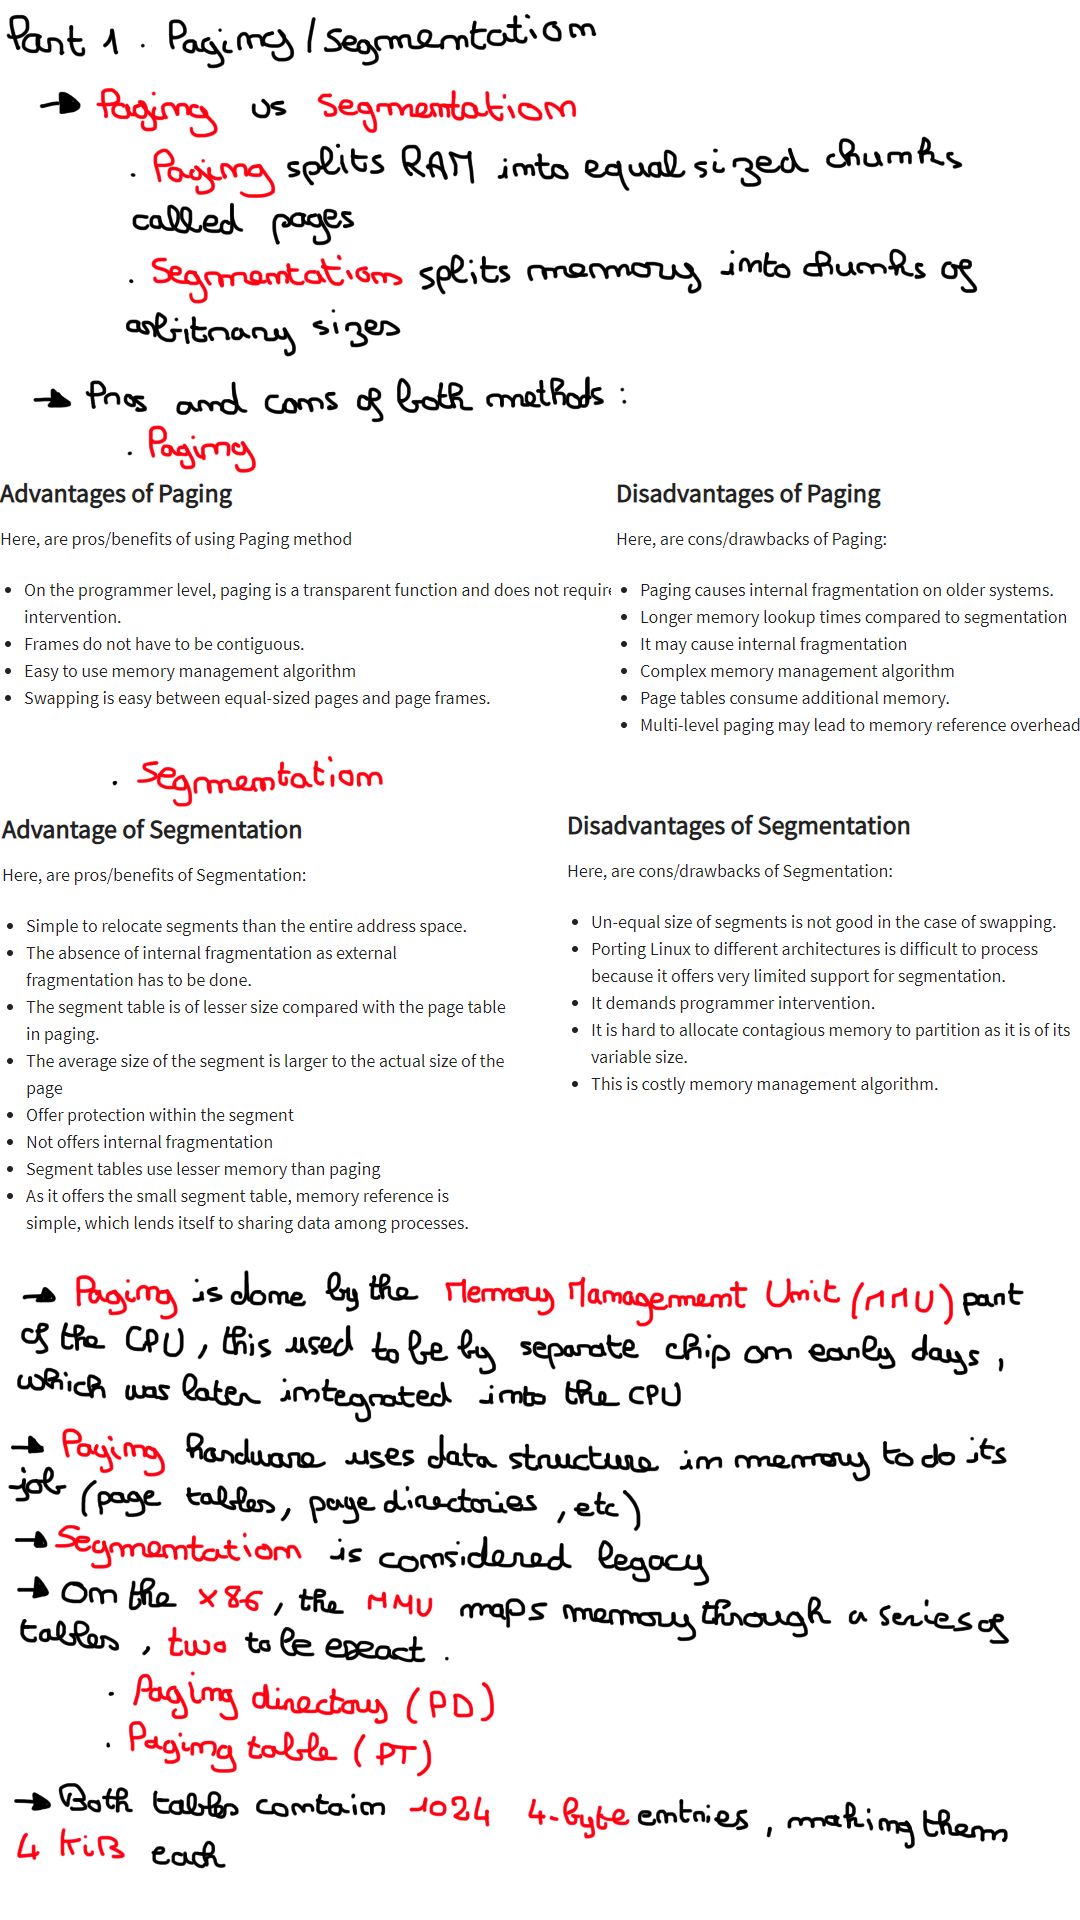 Part 1 . Paging / segmentation
→ Paging vs segmentation
. Paging splits RAM into equal sized chunks
called pages
. Segmentation splits memory into chunks of
arbitrary sizes
→ Pros and cons of both methods :
. Paging
Advantages of Paging
Here, are pros/benefits of using Paging method
• On the programmer level, paging is a transparent function and does not require
intervention.
• Frames do not have to be contiguous.
• Easy to use memory management algorithm
• Swapping is easy between equal-sized pages and page frames.
Disadvantages of Paging
Here, are cons/drawbacks of Paging:
• Paging causes internal fragmentation on older systems.
• Longer memory lookup times compared to segmentation
• It may cause internal fragmentation
• Complex memory management algorithm
• Page tables consume additional memory.
• Multi-level paging may lead to memory reference overhead
. Segmentation
Advantage of Segmentation
Here, are pros/benefits of Segmentation:
• Simple to relocate segments than the entire address space.
• The absence of internal fragmentation as external
fragmentation has to be done.
• The segment table is of lesser size compared with the page table
in paging.
• The average size of the segment is larger to the actual size of the
page
• Offer protection within the segment
• Not offers internal fragmentation
• Segment tables use lesser memory than paging
• As it offers the small segment table, memory reference is
simple, which lends itself to sharing data among processes.
Disadvantages of Segmentation
Here, are cons/drawbacks of Segmentation:
• Un-equal size of segments is not good in the case of swapping.
• Porting Linux to different architectures is difficult to process
because it offers very limited support for segmentation.
• It demands programmer intervention.
• It is hard to allocate contagious memory to partition as it is of its
variable size.
• This is costly memory management algorithm.
→ Paging is done by the Memory Management Unit (MMU) part
of the CPU, this used to be by separate chip on early days,
which was later integrated into the CPU
→ Paging hardware uses data structure in memory to do its
job (page tables, page directories, etc)
→ Segmentation is considered legacy
→ On the x86, the MMU maps memory through a series of
tables, two to be exact.
. Paging directory (PD)
. Paging table (PT)
→ Both tables contain 1024 4-byte entries, making them
4 KiB each